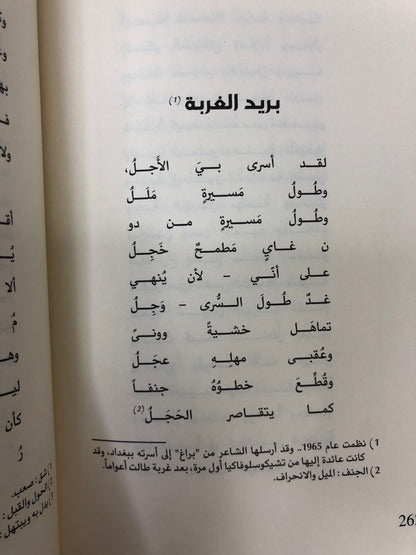 بريد الغربة (1)
لقد أسرى بيَ الأَجلُ،
وطُولُ مَسيرةٍ مَلَلُ
وطُولُ مَسيرةٍ من دو
نِ غايٍ مَطمحٌ خَجِلُ
على أنّي - لأن يُنهي
غدٌ طُولَ السُّرى - وَجِلُ
تماهَل خشيةً وونىً
وعُقبى مهلِهِ عجَلُ
وقُطِّعَ خطوُهُ جنفاً
كما يتقاصر الحَجَلُ (2)
1) نظمت عام 1965.. وقد أرسلها الشاعر من "براغ" إلى أسرته ببغداد، وقد
كانت عائدة إليها من تشيكوسلوفاكيا أول مرة، بعد غربة طالت أعواماً.
2) الجنف: الميل والانحراف.
ألا
وها
كأن
شق: صعب.
الحول والقبل: